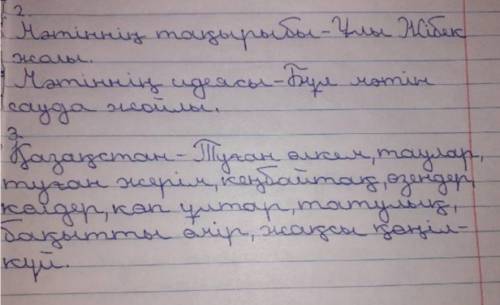 2.
Мәтіннің тақырыбы-Ұлы Жібек
жолы.
Мәтіннің идеясы-Бұл мәтін
сауда жойлы.
3.
Қазақстан-Туған өлкем, таулар,
туған жерім, кеңбайтақ, өзендер,
көлдер, көп ұлтар, татулық,
бақытты өмір, жақсы көңіл-
күй.